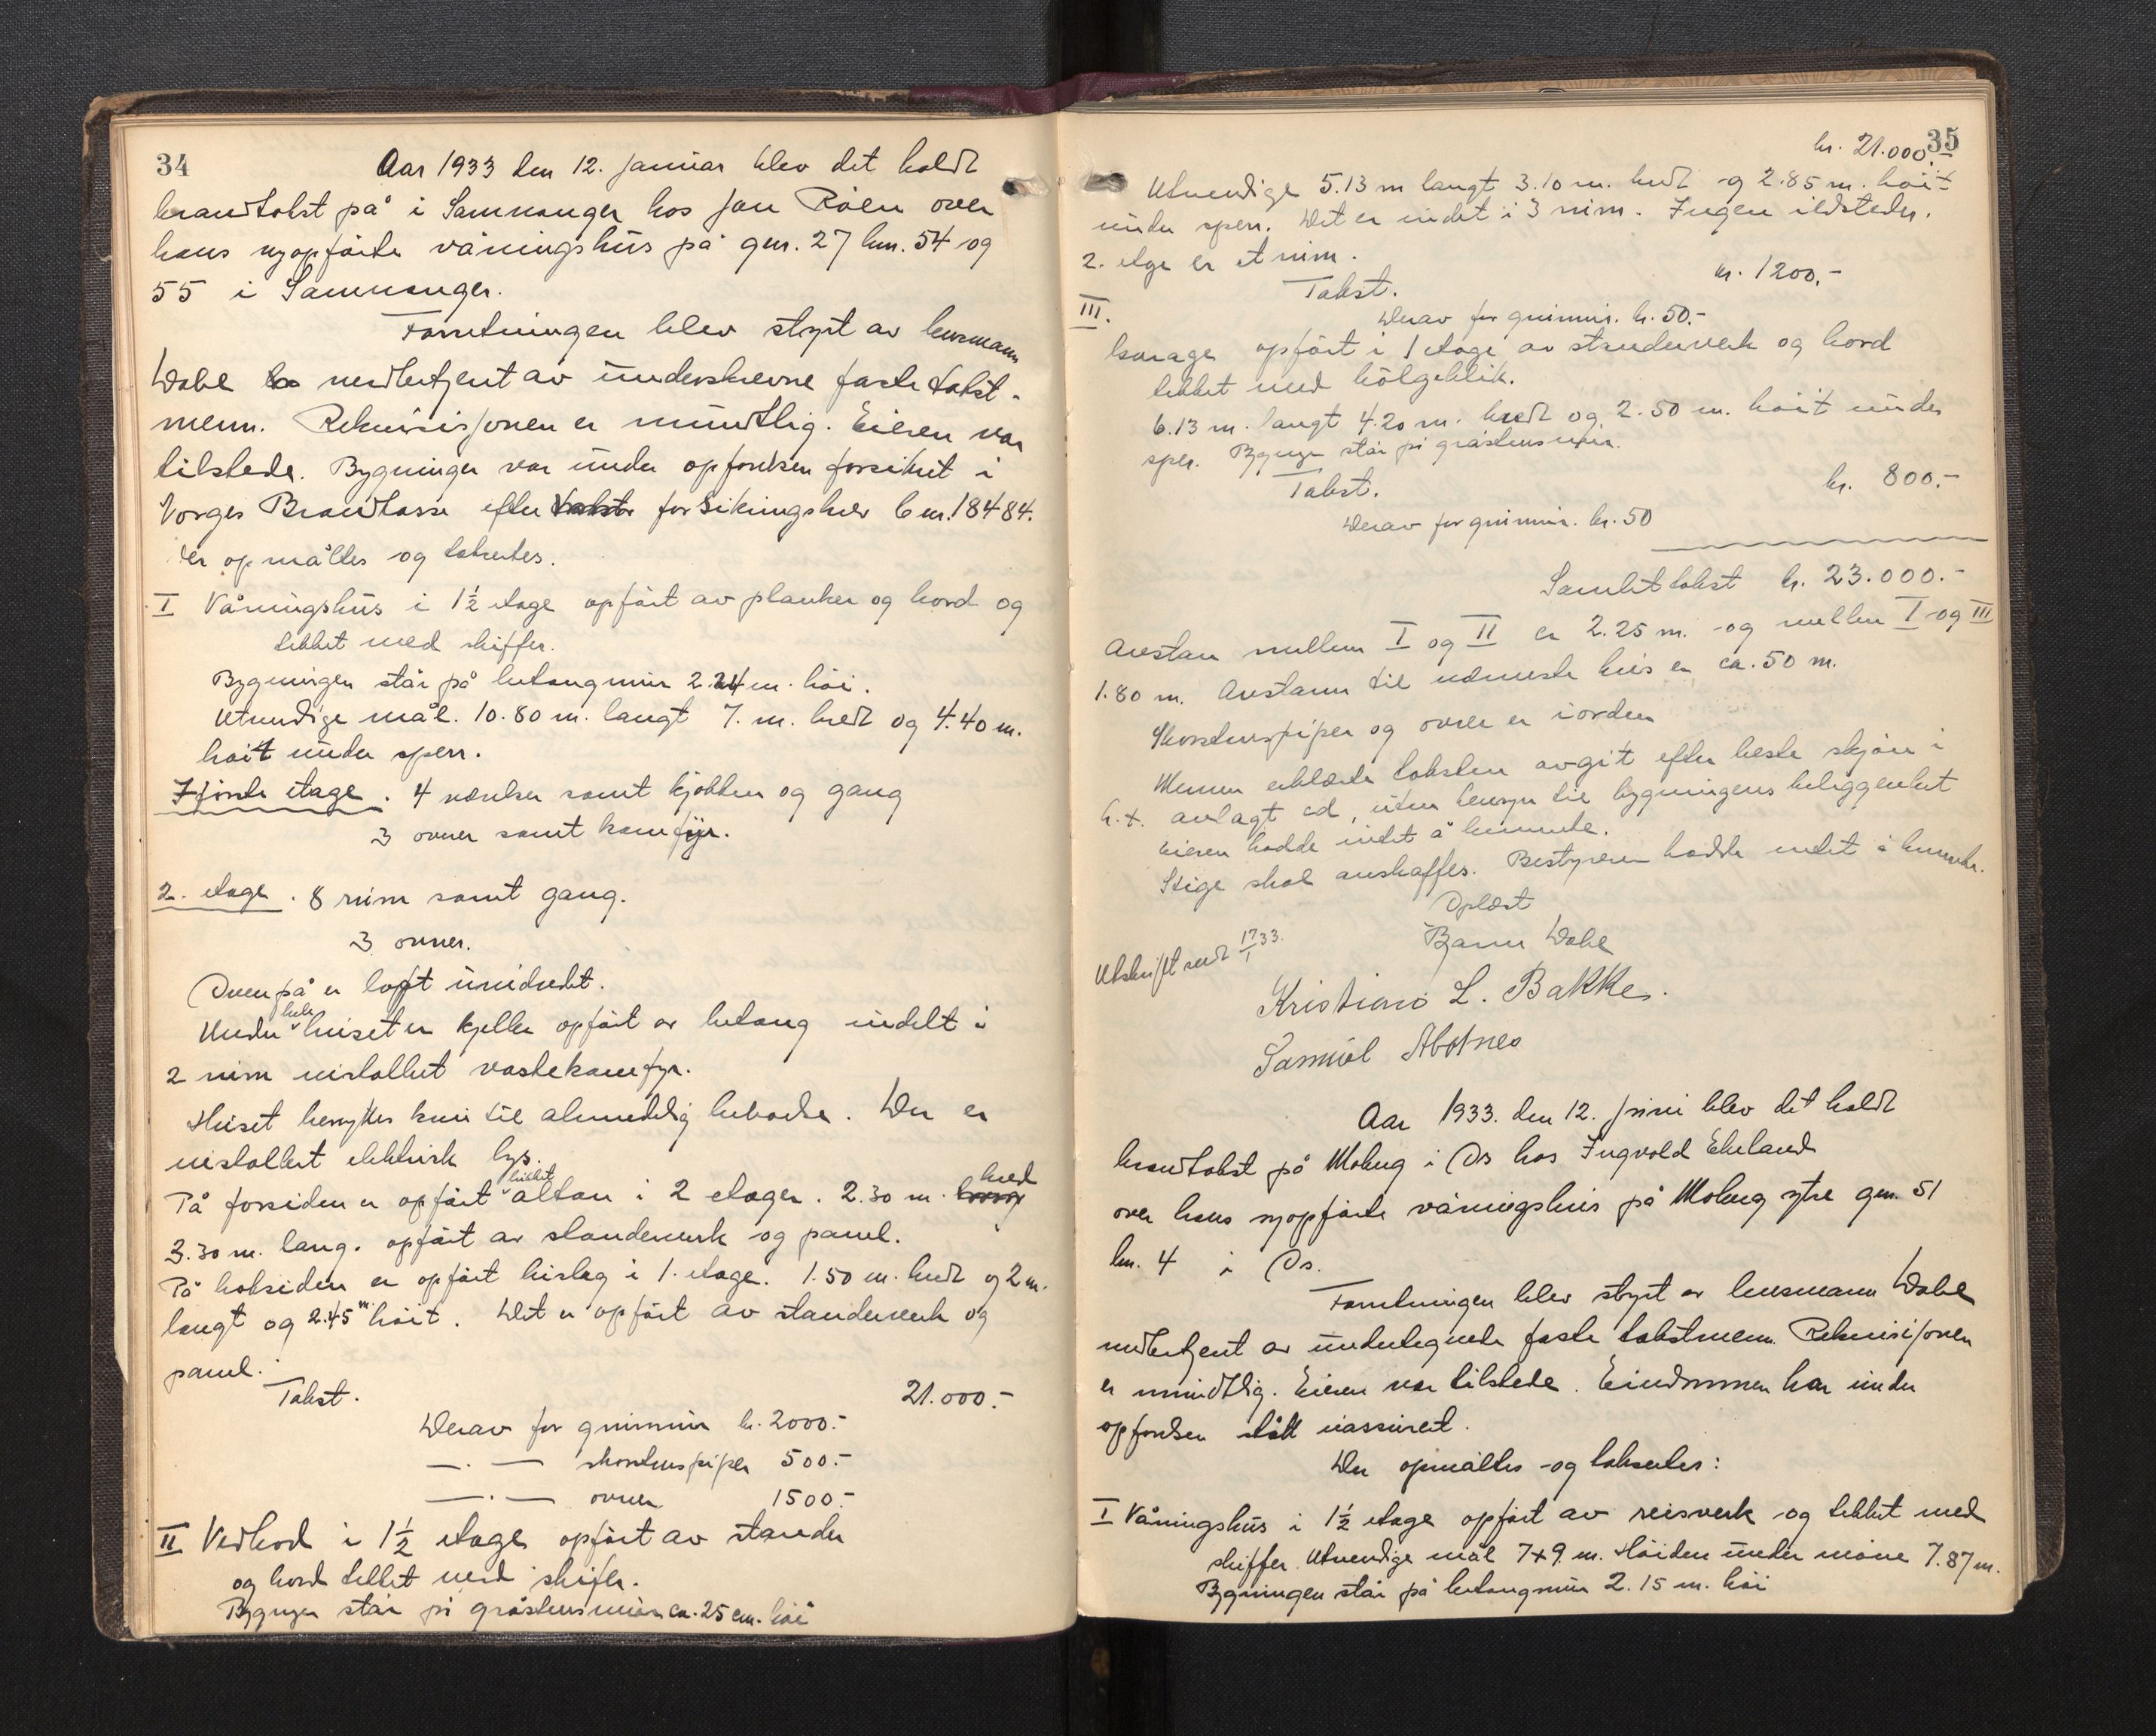 34
Aar 1933 den 12. januar blev det holdt
brandtakst på i Samnanger hos Jon Röen over
hans nyopförte våningshus på gnr. 27 bnr. 54 og
55 i Samnanger.
Forretningen blev styrt av lensmann
Dahl medbetjent av underskrevne faste takst-
menn. Rekvisisjonen er muntlig. Eieren var
tilstede. Bygninger var under opförelsen forsikret i
Norges Brandkasse efter forsikringsbrev 18484.
er opmåltes og taksertes.
I Våningshus i 1½ etage opfört av planker og bord og
tekket med skiffer.
Bygningen står på betongmur 2.24 m. höi.
Utvendige mål. 10.80 m. langt 7. m. bredt og 4.40 m.
höit under sperr.
I förste etage. 4 værelser samt kjökken og gang
3 ovner samt komfyr.
2. etage. 8 rum samt gang.
3 ovner.
Ovenpå er loft uinredet.
Under hele huset er kjeller opfört av betong indelt i
2 rum installert vaskekomfyr.
Huset benyttes kun til almindelig beboelse. Der er
installert elektrisk lys.
På forsiden er opfört lukket altan i 2 etager. 2.30 m. bred
3.30 m. lang. opfört av standerverk og panel.
På baksiden er opfört bislag i 1. etage. 1.50 m. bredt og 2 m.
langt og 2.45 m höit. Det er opfört av standerverk og
panel.
Takst. 21.000.-
Derav for grunmur kr. 2000.-
—.— skorstenspiper 500.-
—.— ovner 1500.-
II Vedbod i 1½ etage opfört av stander
og bord tekket med skifer.
Bygngen står på gråstensmur ca. 25 cm. höi
35
kr. 21.000.-
Utvendige 5.13 m langt 3.10 m. bredt og 2.85 m. höit
under sperr. Det er indet i 3 rum. Ingen ildsteder.
2. etge er et rum.
Takst. kr. 1200.-
Derav for grunmur. kr. 50.-
III.
Garage opfört i 1 etage av standerverk og bord
tekket med bölgeblik.
6.13 m. langt 4.20 m. bredt og 2.50 m. höit under
sper. Bygngen står på gråstensmur.
Takst. kr. 800.-
Derav for grunmur. kr. 50
Samlet takst kr. 23.000.-
Avstan mellem I og II er 2.25 m. og mellem I og III
1.80 m. Avstann til nærmeste hus er ca. 50 m.
Skorstenspiper og ovner er i orden
Mennen erklærte taksten avgit efter beste skjön i
h.t. avlagt ed, uten hensyn til bygningens beliggenhet
Eieren hadde intet å bemerke.
Stige skal anskaffes. Bestyreren hadde intet å bemerke.
Oplæst
Bjarne Dahl
Utskrift sendt 17/1 33.
Kristian L. Bakke.
Samuel Abotnes
Aar 1933. den 12. juni blev det holdt
brandtakst på Moberg i Os hos Ingvald Ekeland
over hans nyopförte våningshus på Moberg ytre gnr. 51
bnr. 4 i Os.
Forretningen blev styrt av lensmann Dahl
medbetjent av undertegnete faste takstmenn. Rekvisisjonen
er muntlig. Eieren var tilstede. Eiendommen har under
opförelsen stått uassurert.
Der opmåltes og taksertes:
I Våningshus i 1½ etage opfört av reisverk og tekket med
skiffer. Utvendige mål 7x9 m. Höiden under möne 7.87 m.
Bygningen står på betongmur 2.15 m. höi